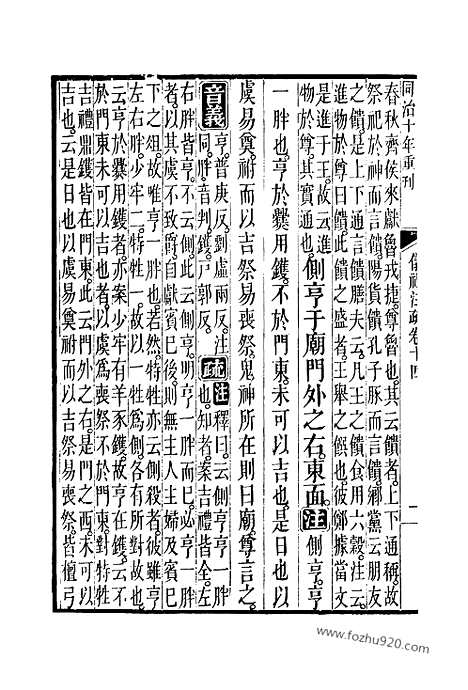 同治十年重刊
儀禮注疏卷十四
二
春秋齊侯來獻魯戎捷尊魯也其云饋者上下通稱故
祭祀於神而言饋陽貨饋孔子豚而言饋鄉黨云朋友
之饋是上下通言饋膳夫云凡王之饋食用六穀注云
進物於尊曰饋此饋之盛者王舉之饌也彼鄭據當文
是進于王故云進
物於尊其實通也側亨于廟門外之右東面注側亨亨
一胖也亨於爨用鑊不於門東未可以吉也是日也以
虞易奠祔而以吉祭易喪祭鬼神所在則曰廟尊言之
音義亨普庚反劉虛兩反注同胖音判鑊戶郭反疏注側亨至言之釋曰云側亨亨一胖也知者案吉禮皆全左
右胖皆亨不云側此云側亨明亨一胖而已必亨一胖
者以其虞不致爵自獻賓已後則無主人主婦及賓已
下之俎故唯亨一胖也若然特牲亦云側殺者彼雖亨
左右胖少牢二特牲一故以一牲爲側各有所對故也
云亨於爨用鑊者亦案少牢有羊豕鑊故亨在鑊云不
於門東未可以吉也者以虞爲喪祭不於門東對特牲
吉禮鼎鑊皆在門東此云門外之右是門之西未可以
吉也云是日也以虞易奠祔而以吉祭易喪祭皆檀弓
www.fozhu920.com